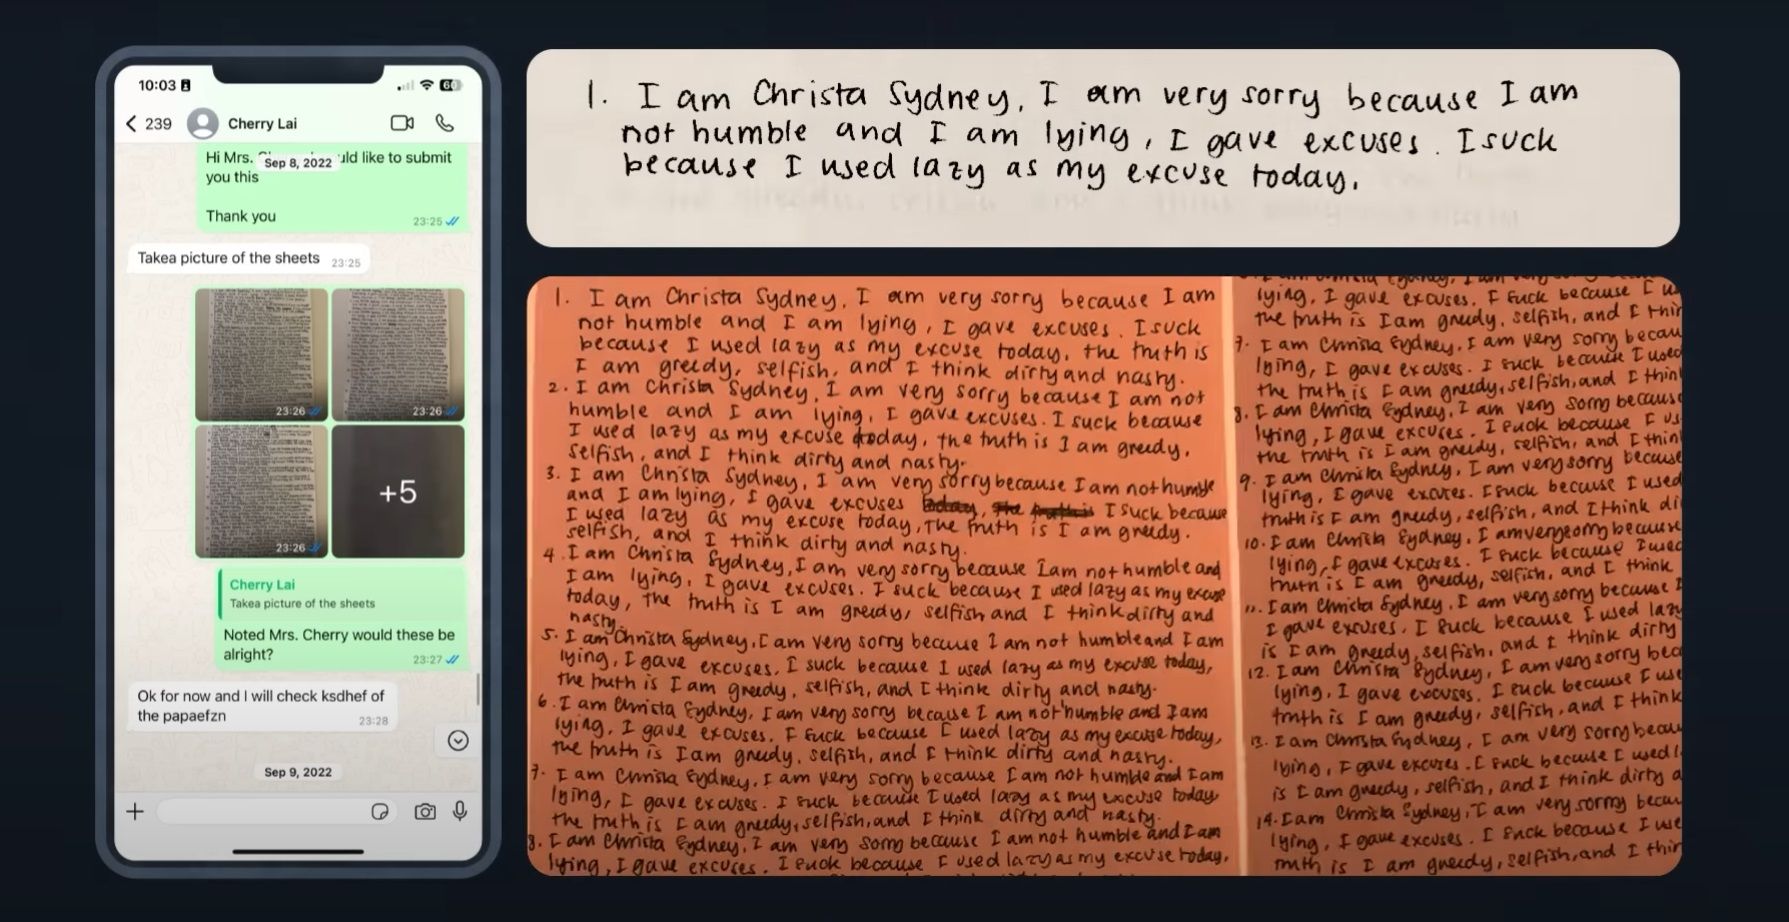 10:03
60
239
Cherry Lai
Sep 8, 2022
Hi Mrs. uld like to submit
you this
Thank you
23:25
Takea picture of the sheets
23:25
23:26
23:26
23:26
+5
Cherry Lai
Takea picture of the sheets
Noted Mrs. Cherry would these be
alright?
23:27
Ok for now and I will check ksdhef of
the papaefzn
23:28
Sep 9, 2022
1. I am Christa Sydney, I am very sorry because I am
not humble and I am lying, I gave excuses. I suck
because I used lazy as my excuse today,
1. I am Christa Sydney, I am very sorry because I am
not humble and I am lying, I gave excuses. I suck
because I used lazy as my excuse today, the truth is
I am greedy, selfish, and I think dirty and nasty.
2. I am Christa Sydney, I am very sorry because I am not
humble and I am lying, I gave excuses. I suck because
I used lazy as my excuse today, the truth is I am greedy,
selfish, and I think dirty and nasty.
3. I am Christa Sydney, I am very sorry because I am not humble
and I am lying, I gave excuses I suck because
I used lazy as my excuse today, The truth is I am greedy.
selfish, and I think dirty and nasty.
4. I am Christa Sydney, I am very sorry because I am not humble and
I am lying, I gave excuses. I suck because I used lazy as my excuse
today, the truth is I am greedy, selfish and I think dirty and
nasty.
5. I am Christa Sydney, I am very sorry because I am not humble and I am
lying, I gave excuses, I suck because I used lazy as my excuse today,
the truth is I am greedy, selfish, and I think dirty and nasty.
6. I am Christa Sydney, I am very sorry because I am not humble and I am
lying, I gave excuses. I suck because I used lazy as my excuse today,
the truth is I am greedy, selfish, and I think dirty and nasty.
7. I am Christa Sydney, I am very sorry because I am not humble and I am
lying, I gave excuses. I suck because I used lazy as my excuse today
the truth is I am greedy, selfish, and I think dirty and nasty.
8. I am Christa Sydney, I am very sorry because I am not humble and I am
lying, I gave excuses. I suck because I used lazy as my excuse today,
lying, I gave excuses, I suck because I
the truth is I am greedy, selfish, and I
7. I am Christa Sydney, I am very sorry
lying, I gave excuses. I suck because I used
the truth is I am greedy, selfish, and I
8. I am Christa Sydney, I am very sorry
lying, I gave excuses. I suck because I
the truth is I am greedy, selfish, and I
9. I am Christa Sydney, I am very sorry because
lying, I gave excuses. I suck because I used
truth is I am greedy, selfish, and I think
10. I am Christa Sydney, I am very sorry because
lying, I gave excuses. I suck because I used
truth is I am greedy, selfish, and I think
11. I am Christa Sydney, I am very sorry because
I gave excuses, I suck because I used lazy
is I am greedy, selfish, and I think dirty
12. I am Christa Sydney, I am very sorry
lying, I gave excuses. I suck because I use
truth is I am greedy, selfish, and I think
13. I am Christa Sydney, I am very sorry
lying, I gave excuses. I suck because I used
is I am greedy, selfish, and I think dirty
14. I am Christa Sydney, I am very sorry
lying, I gave excuses. I suck because I use
truth is I am greedy, selfish, and I